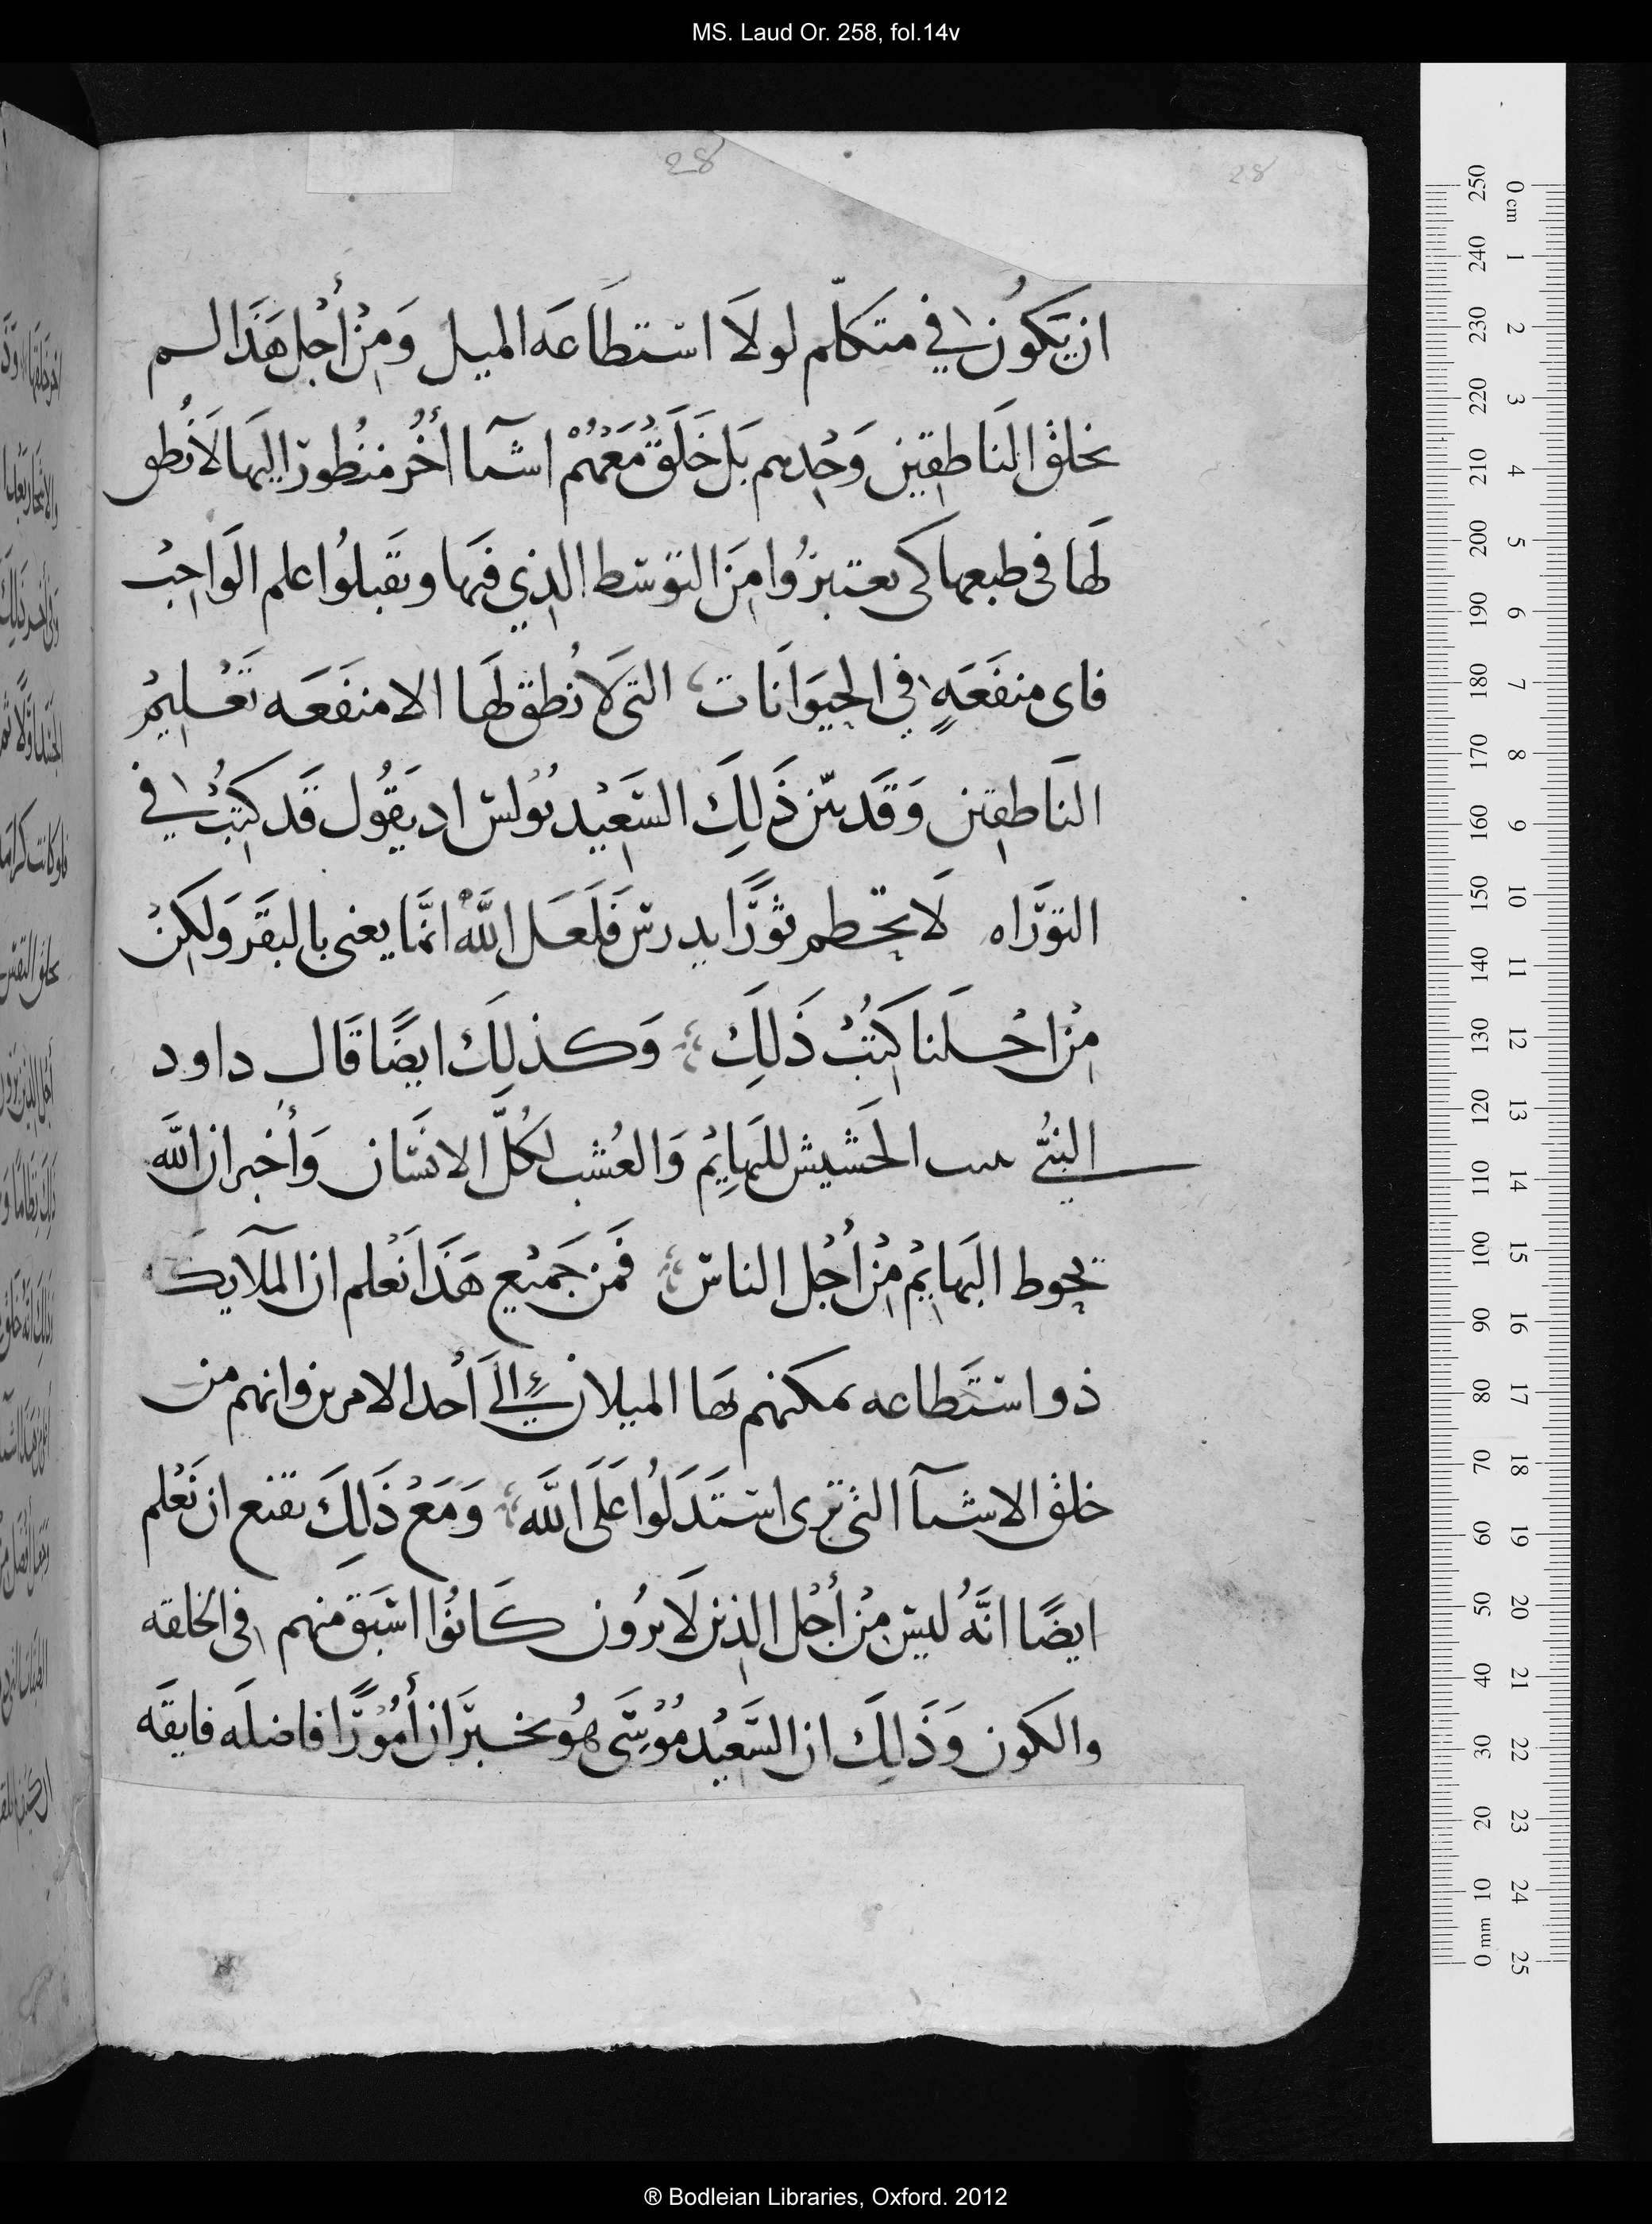 MS. Laud Or. 258, fol.14v
28
28
ان يَكُون في متكلّم لولَا استطَاعَه الميل وَمِنْ أَجْل هَذَا لم
يخلق النَاطِقِين وَحِدهم بَل خَلَقَ مَعَهُمْ اشيآ أُخَر منظُور اليهَا لَا نُطق
لَهَا فى طبعها كى يعتبرُوا مِنَ التوسّط الذِي فيهَا ويقبلُوا علم الوَاجِبْ
فاى منفَعَهٍ في الحِيَوَانَات التى لَا نُطق لَهَا الا منفَعَه تَعْلِيمْ
النَاطقِين وَقَد بيّن ذَلِكَ السَعِيْد بُوْلس اد يَقُول قَد كُتِبْ في
التورَاه لَا تحطم ثورًا يدرس فَلَعَل اللَّه انمَّا يعنى بالبقَر وَلَكِنْ
مِنْ اجْلنا كُتِبْ ذَلِكَ وَكذلِك ايضًا قَال داود
النبُّي الحَشيش للبهَايِمْ وَالعُشب لكُلِّ الانسَان وَأَخبر ان اللَّه
يحُوط البهَايِمْ مِنْ أَجْل الناس فَمن جَمِيْع هَذَا نَعْلم ان الملآيكه
ذو استَطاعه يمكنهم بهَا الميلان إِليَ احَد الامرين وانهم من
خلق الاشيآ التى ترى استَدَلُوا عَلَى اللَّه وَمَعْ ذَلِكَ يقنع ان نَعْلم
ايضًا انَّهُ ليس مِنْ أَجْل الذِين لَا يرُون كَانُوا اسبَق منهم فى الخلقه
والكون وَذَلِكَ ان السَّعِيْد مُوْسَى هُو يخبرّ ان أُمُوْرًا فاضلَه فايقَه
® Bodleian Libraries, Oxford. 2012